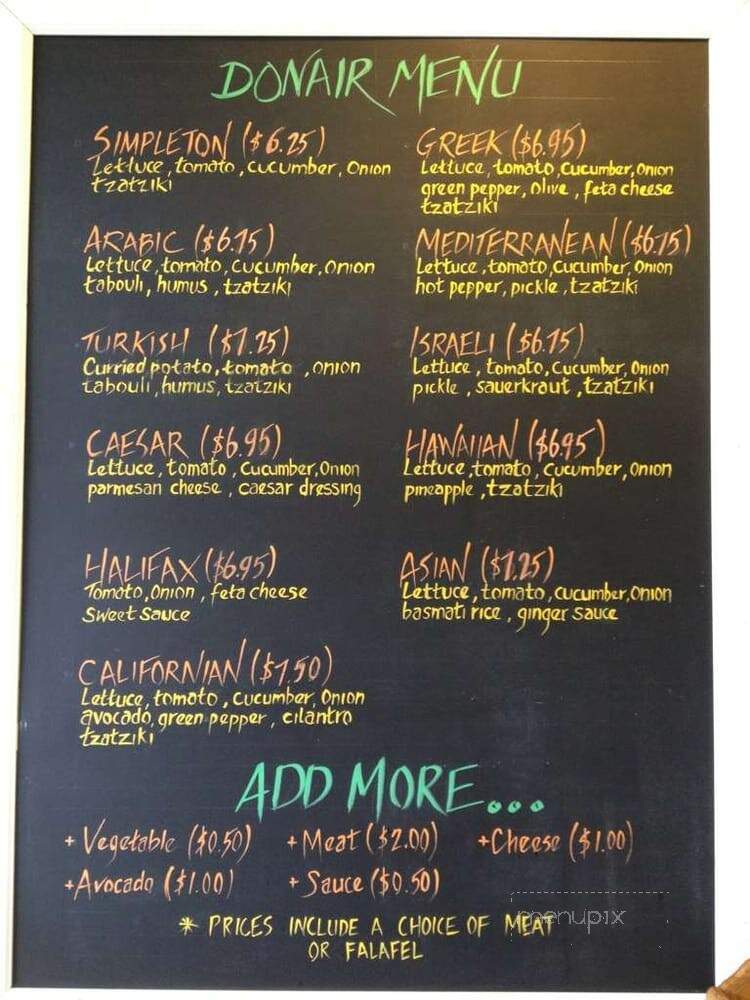 DONAIR MENU
SIMPLETON ($6.25)
Lettuce, tomato, cucumber, Onion
tzatziki
GREEK ($6.95)
Lettuce, tomato, cucumber, Onion
green pepper, olive, feta cheese
tzatziki
ARABIC ($6.75)
Lettuce, tomato, cucumber, Onion
tabouli, humus, tzatziki
MEDITERRANEAN ($6.75)
Lettuce, tomato, cucumber, Onion
hot pepper, pickle, tzatziki
TURKISH ($7.25)
Curried potato, tomato, onion
tabouli, humus, tzatziki
ISRAELI ($6.75)
Lettuce, tomato, cucumber, Onion
pickle, sauerkraut, tzatziki
CAESAR ($6.95)
Lettuce, tomato, cucumber, Onion
parmesan cheese, caesar dressing
HAWAIIAN ($6.95)
Lettuce, tomato, cucumber, Onion
pineapple, tzatziki
HALIFAX ($6.95)
Tomato, Onion, feta cheese
Sweet Sauce
ASIAN ($7.25)
Lettuce, tomato, cucumber, Onion
basmati rice, ginger sauce
CALIFORNIAN ($7.50)
Lettuce, tomato, cucumber, Onion
avocado, green pepper, cilantro
tzatziki
ADD MORE...
+ Vegetable ($0.50) + Meat ($2.00) + Cheese ($1.00)
+ Avocado ($1.00) + Sauce ($0.50)
* PRICES INCLUDE A CHOICE OF MEAT
OR FALAFEL
menupix